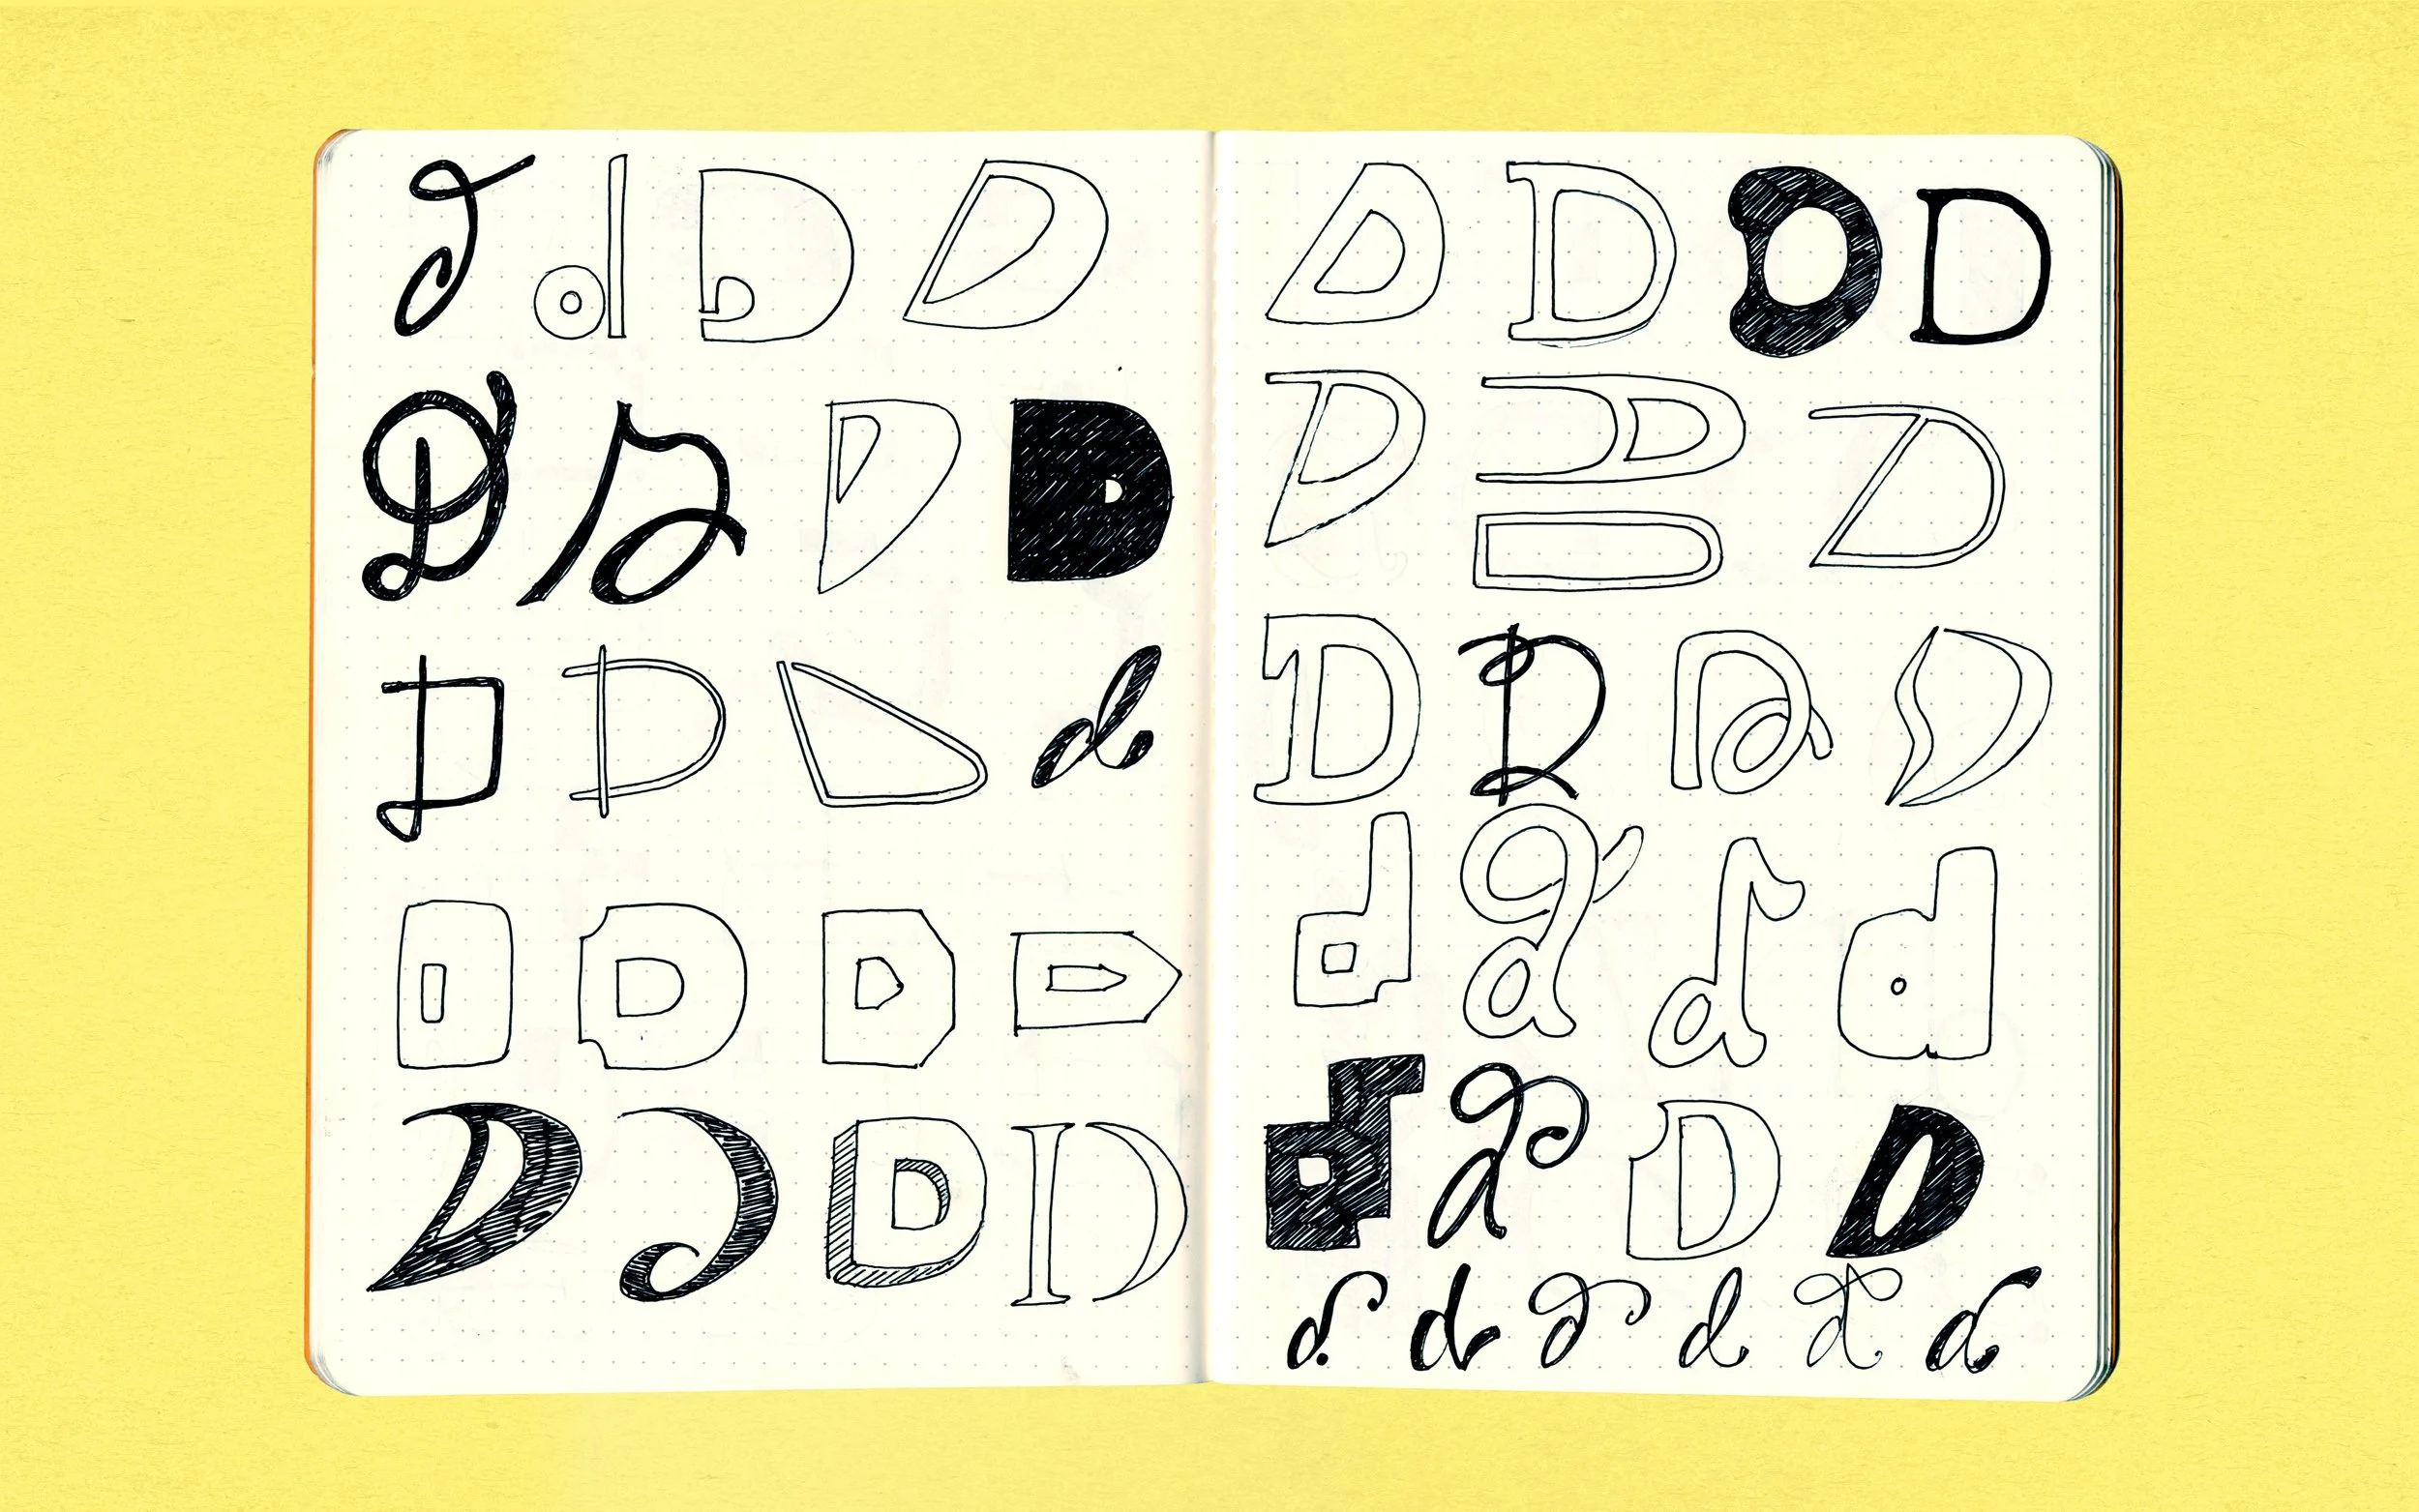 d d D D
D D D D
D D D d
D D D D
D D D D
D D D D
D D D
D
D D D D
d d d d
d d D D
d d d d d d